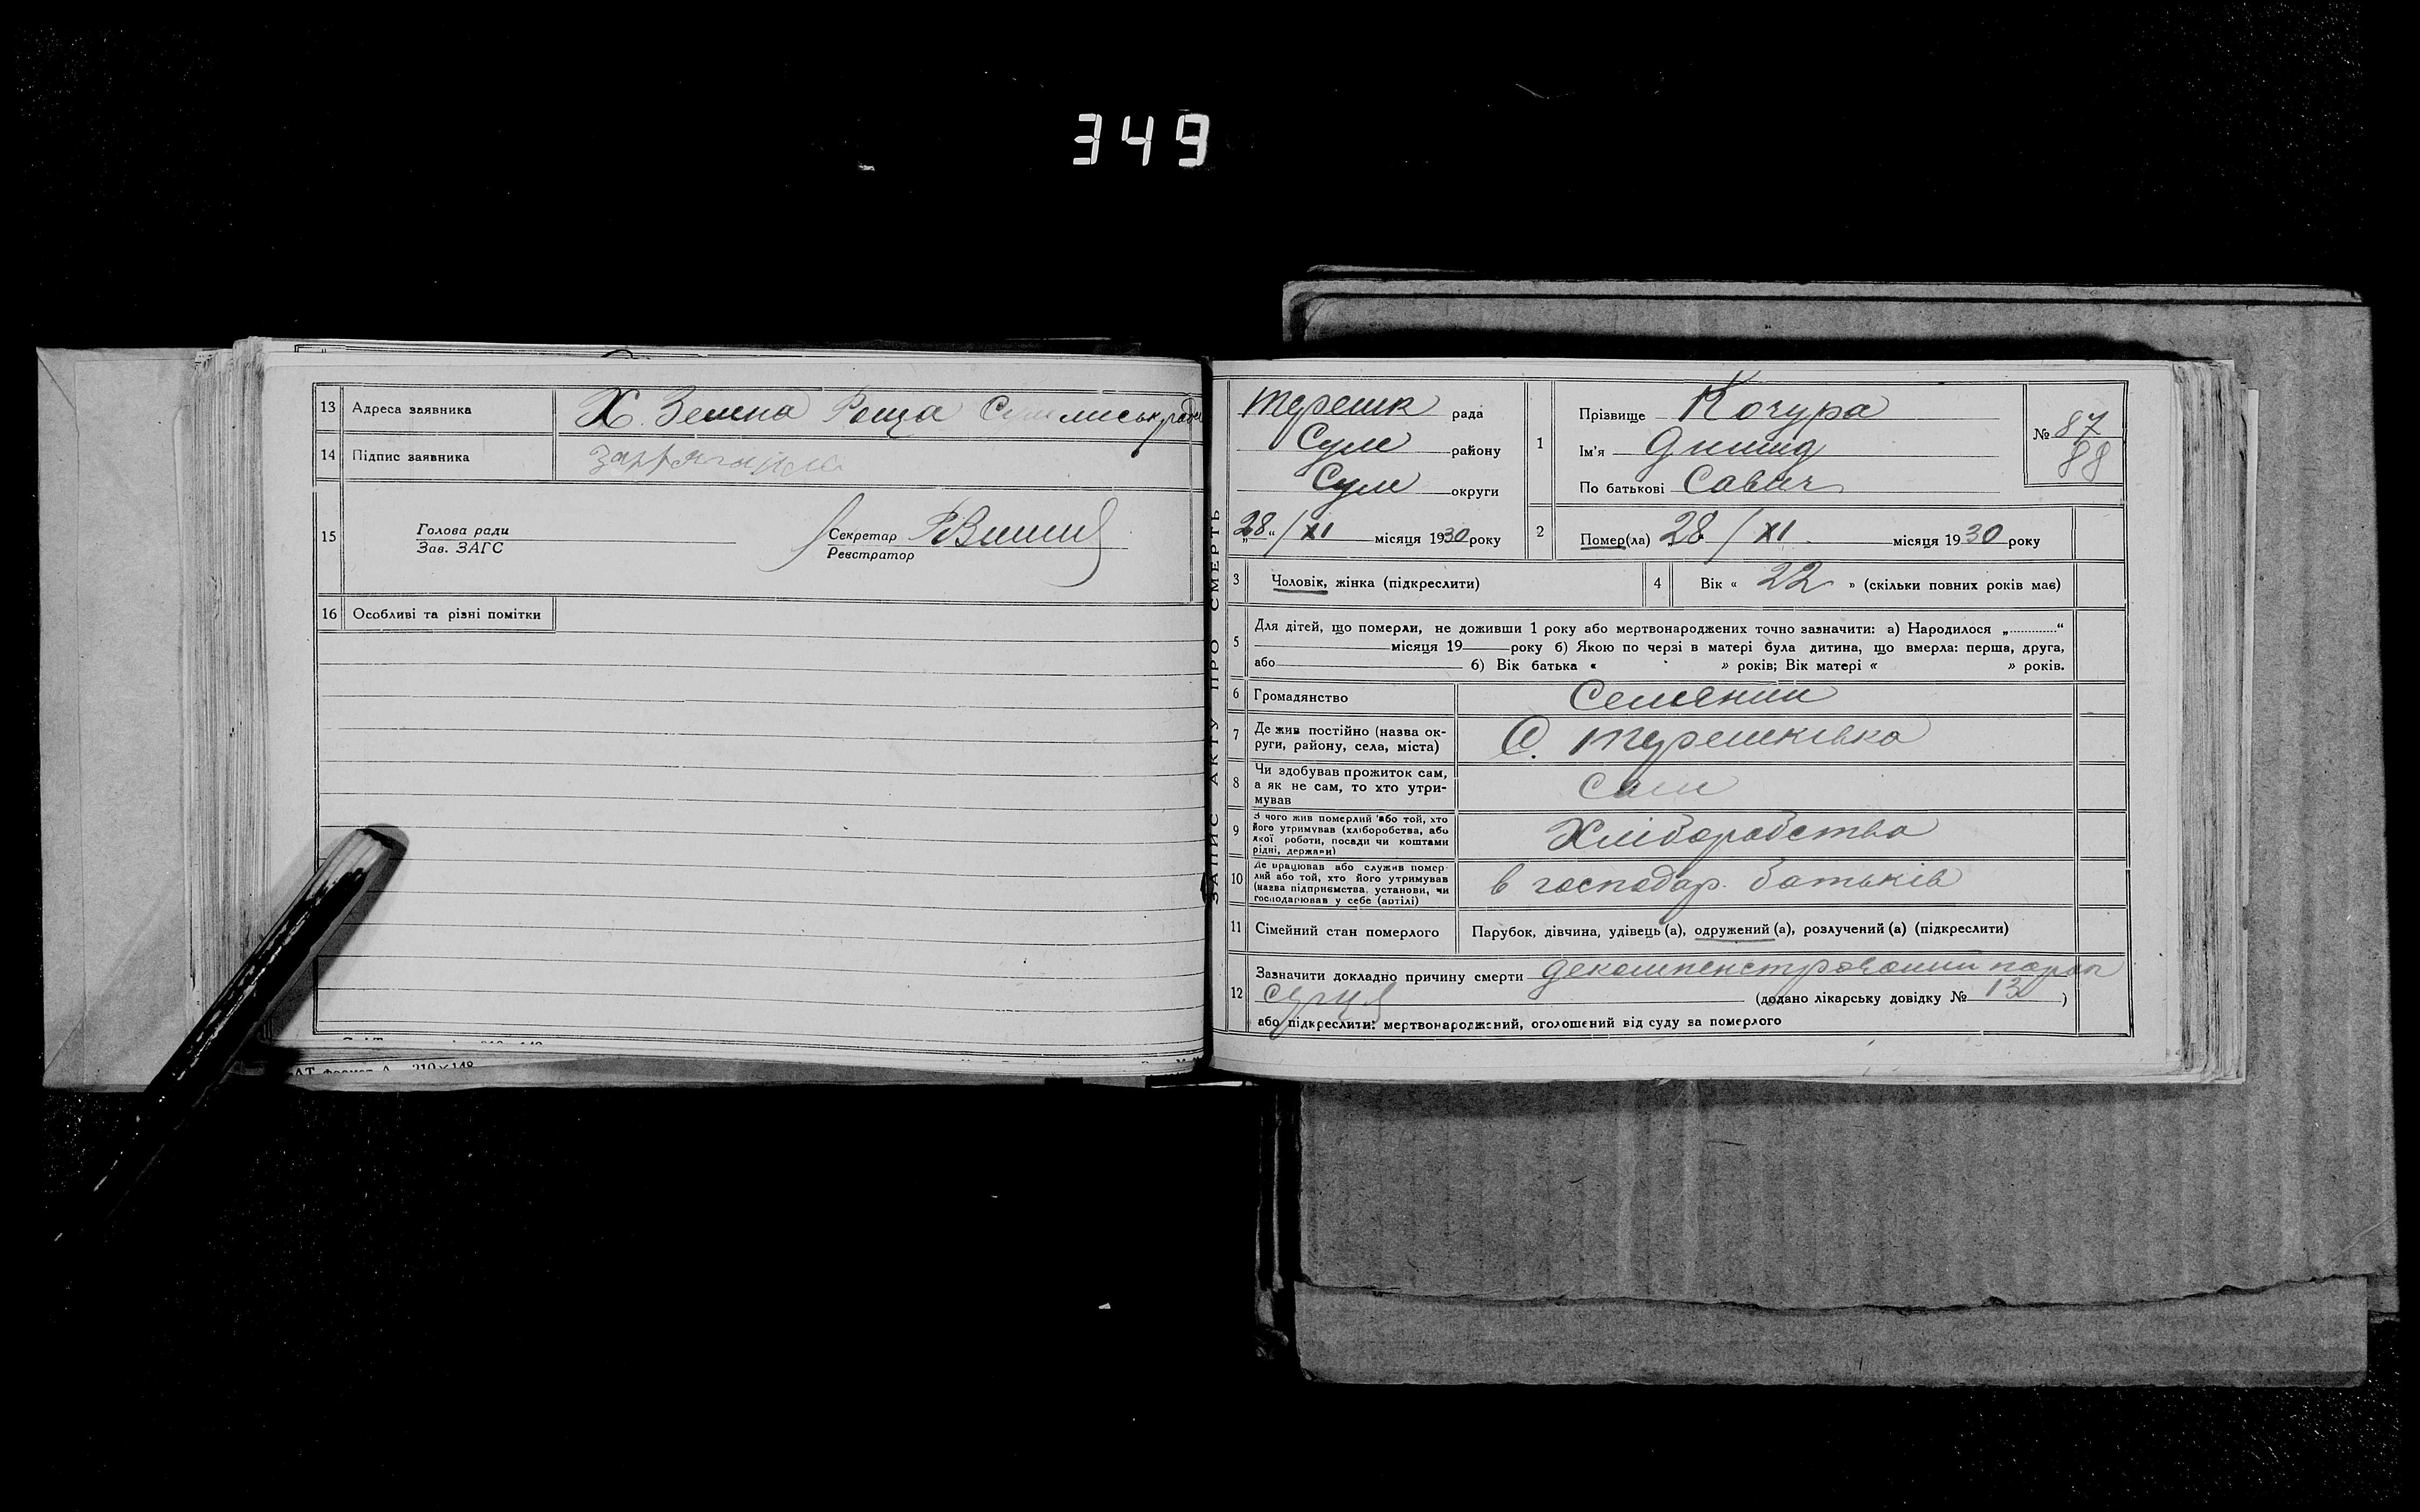 349
13 Адреса заявника Х. Зелена Роща
14 Підпис заявника
15 Голова ради
Зав. ЗАГС
Секретар
Реєстратор
16 Особливі та різні помітки
Формат А 210×148
ЗАПИС АКТУ ПРО СМЕРТЬ
Терешк рада
Сум району
Сум округи
„28“/XI місяця 1930 року
1 Прізвище Кочура
Ім'я
По батькові Савич
№ 87
88
2 Помер(ла) 28/XI місяця 1930 року
3 Чоловік, жінка (підкреслити)
4 Вік « 22 » (скільки повних років має)
5 Для дітей, що померли, не доживши 1 року або мертвонароджених точно зазначити: а) Народилося „............“
місяця 19 року б) Якою по черзі в матері була дитина, що вмерла: перша, друга,
або б) Вік батька « » років; Вік матері « » років.
6 Громадянство Селянин
7 Де жив постійно (назва ок-
руги, району, села, міста) С. Терешківка
8 Чи здобував прожиток сам,
а як не сам, то хто утри-
мував сам
9 З чого жив померлий або той, хто
його утримував (хліборобства, або
якої роботи, посади чи коштами
рідні, держави) Хліборобство
10 Де працював або служив помер-
лий або той, хто його утримував
(назва підприємства, установи, чи
господарював у себе (артілі) в господар. батьків
11 Сімейний стан померлого Парубок, дівчина, удівець (а), одружений (а), розлучений (а) (підкреслити)
12 Зазначити докладно причину смерти порок
серця (додано лікарську довідку № 13 )
або підкреслити: мертвонароджений, оголошений від суду за померлого